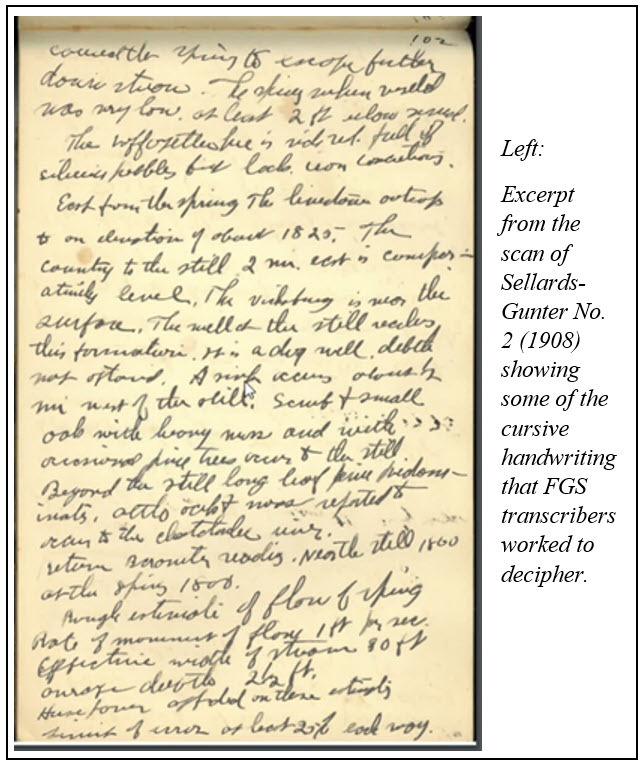 102
spring to escape further
down stream. The spring when visited
was very low. at least 2 ft below
The is full of
pebbles but lacks iron concretions.
East from the spring The limestone outcrops
to an elevation of about 1825. The
country to the still 2 mi. east is compar-
atively level. The Vicksburg is near the
surface. The well at the still reaches
this formation. It is a dug well, depth
not obtained. A sink occurs about ½
mi west of the still. Scrub & small
oak with heavy moss and with
occasional pine trees occur to the still
Beyond the still long leaf pine predom-
inates, oak & moss reported to
occur to the river.
return Barometer reading. Near the still 1800
at the spring 1800.
Rough estimate of flow of spring
Rate of movement of flow 1 ft per sec.
Effective width of stream 80 ft
average depth 2½ ft.
Horse power on these
limit of error at least 25% each way.
Left:
Excerpt
from the
scan of
Sellards-
Gunter No.
2 (1908)
showing
some of the
cursive
handwriting
that FGS
transcribers
worked to
decipher.